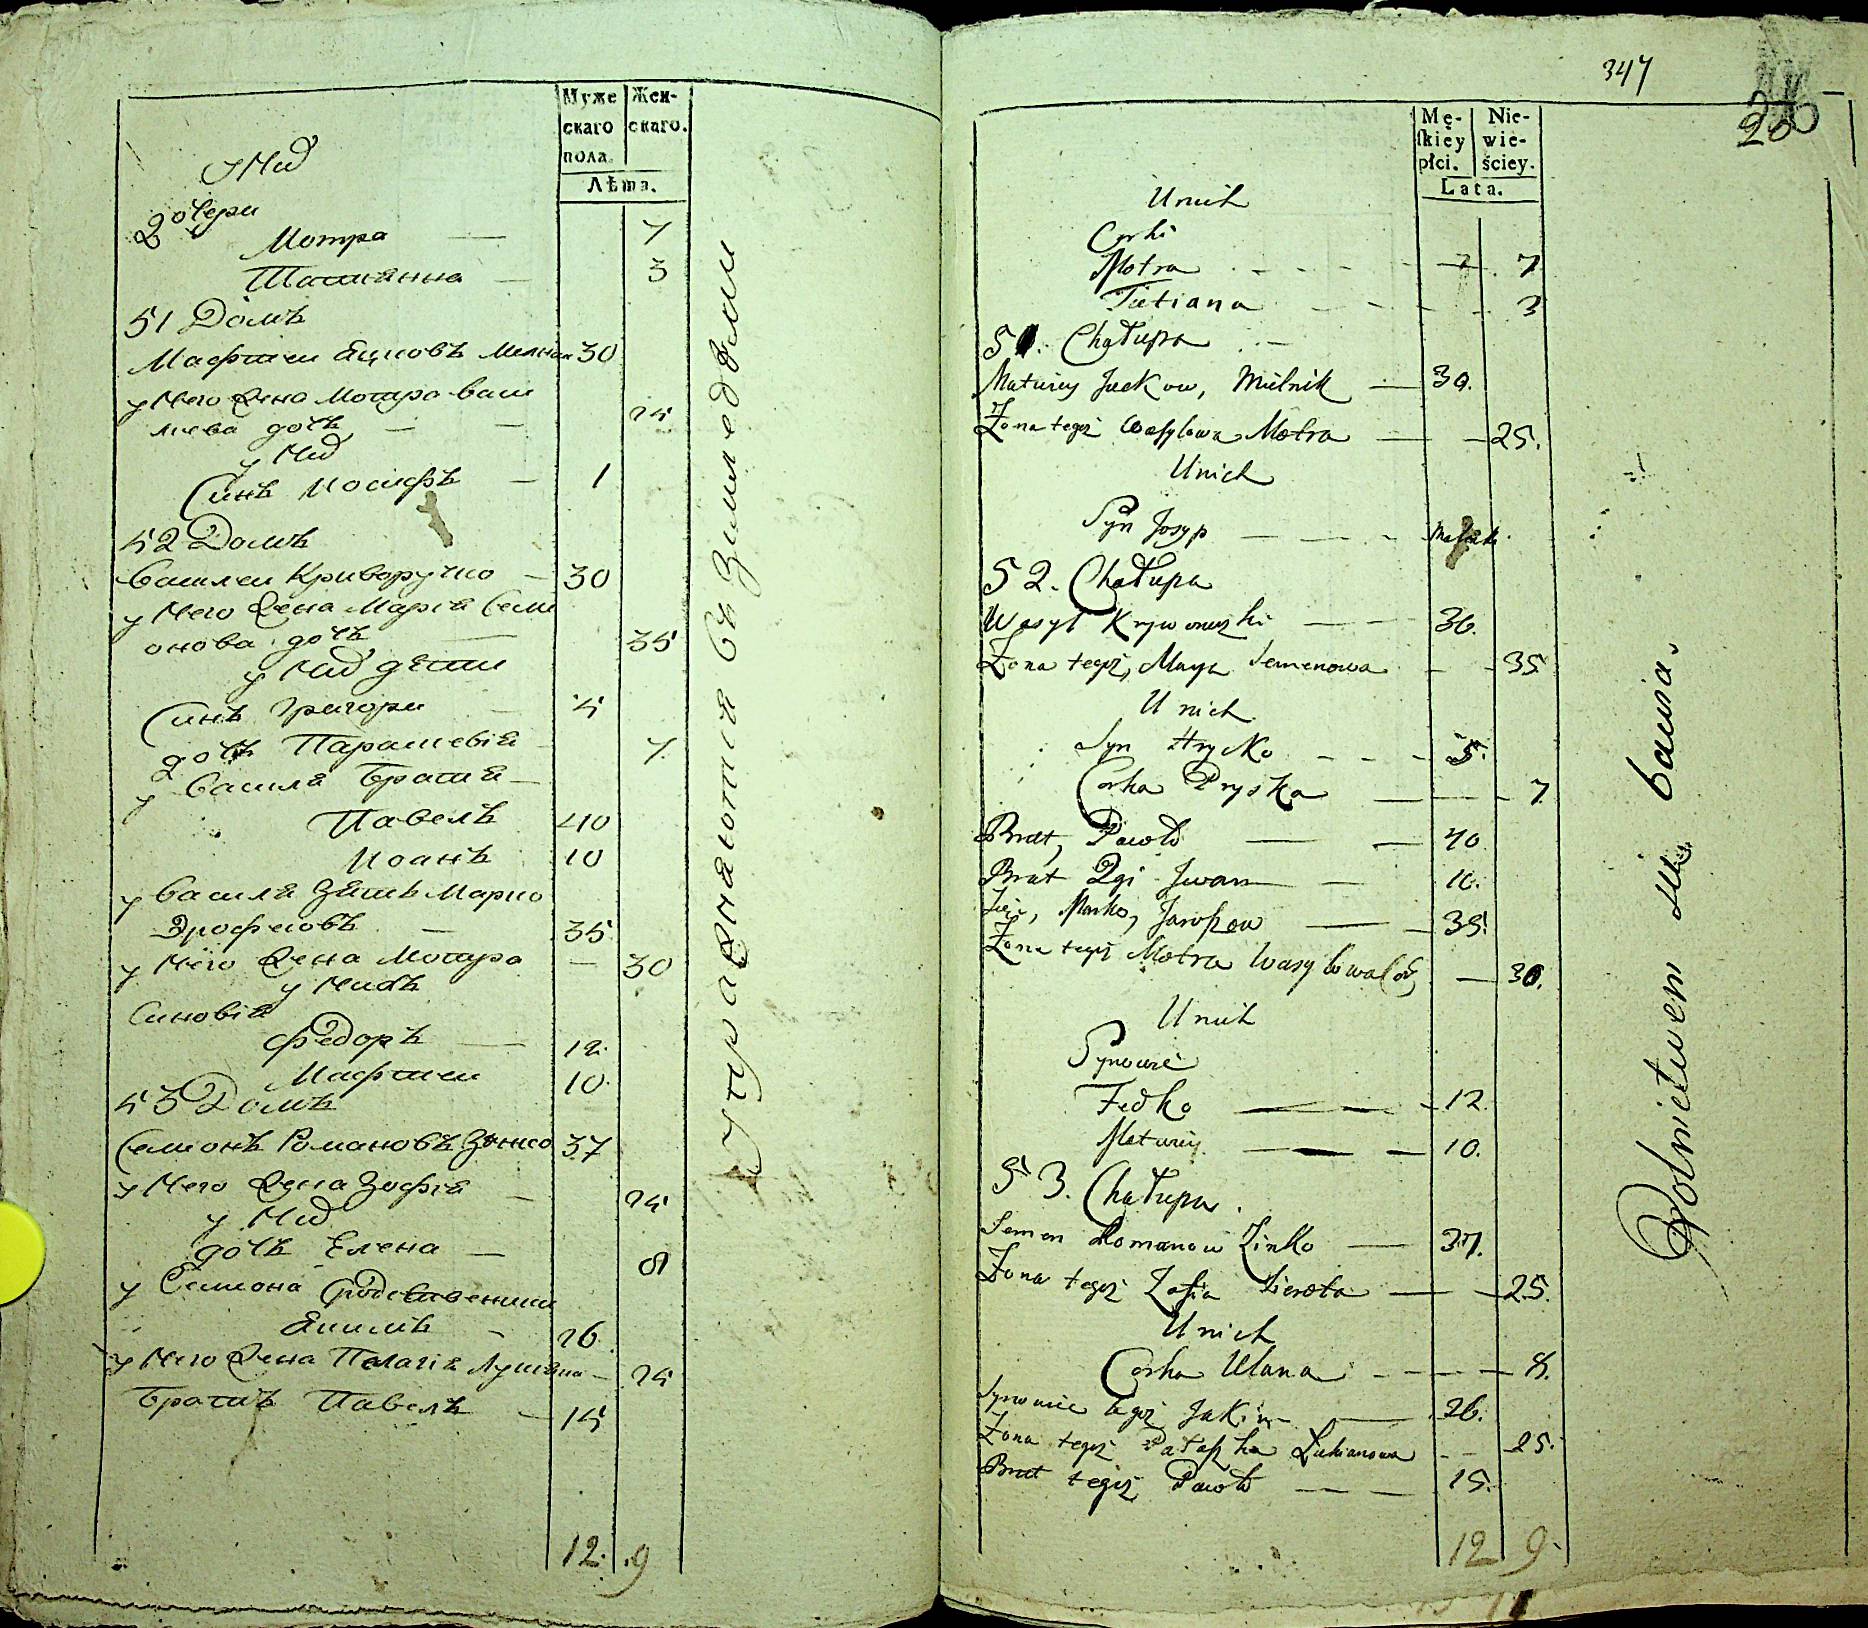 Муже
скаго
пола.
Жен-
скаго.
Лѣта.
у Них
Дочери
Мотра — 7
Татианна — 3
51 Домъ
Мафтеи Яцковъ Мелник 30
у Него Жена Мотра Васи
лиева дочь — — 25
у Них
Синъ Иосифъ — 1
52 Домъ
Василеи Криворучко — 30
у Него Жена Мария Семи
онова дочь — 35
у Них дѣти
Синъ Григори — 5
дочь Параскевія — 7
у Василя Братия —
Павелъ 40
Иоанъ 10
у Василя Зять Марко
Ярофеовъ — 35
у Него Жена Мотра — 30
у Нихъ
Синовія
Федоръ — 12
Мафтеи 10
53 Домъ
Семионъ Романовъ Зѣнко 37
у Него Жена Зофія — 25
у Них
дочь Елена — 8
у Семиона Сродственники
Якимъ — 26
у Него Жена Пелагія Лукіяна — 25
Братъ Павелъ — 15
12. 9
Упражняются въ Земледѣлии
347
20
Mę-
skiey
płci.
Nie-
wie-
ściey.
Lata.
U nich
Corki
Motra 7 7
Tatiana 3
51. Chałupa
Maturey Jackow, Mielnik — 30.
Żona tegoż Wasylowa Motra — 25.
U nich
Syn Josyp
52. Chałupa
Wasyl Kryworuczko — 30.
Żona tegoż, Marya Semenowa — 35
U nich
Syn Hryćko 5.
Corka Pryska — 7
Brat, Pawło — 40
Brat 2gi Iwan — 10.
Zięć, Marko, Jarofiow — 35.
Żona tegoż Motra Wasylowa — 30.
U nich
Synowie
Fedko — 12.
Maturey — 10.
53. Chałupa.
Semen Romanow Zinko — 37.
Żona tegoż Zofia — 25.
U nich
Corka Ulana — 8.
Synowiec tegoż Jakim — 26.
Żona tegoż Pałaszka Łukianowa — 25.
Brat tegoż Pawło — 15.
12 9.
Rolnictwem się bawią.